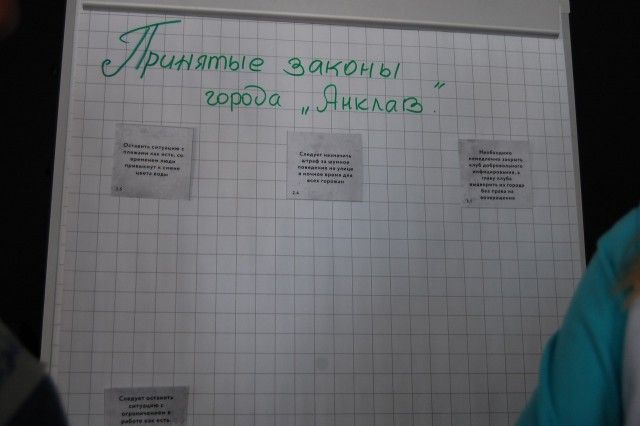 Принятые законы
города „Анклав".
Оставить ситуацию с
пляжами как есть, со
временем люди
привыкнут к смене
цвета воды
3.5
Следует назначить
штраф за шумное
поведение на улице
в ночное время для
всех горожан
2.4
Необходимо
немедленно закрыть
клуб добровольного
инфицирования, а
главу клуба
выдворить из города
без права на
возвращение
Следует оставить
ситуацию с
ограничением в
работе как есть.